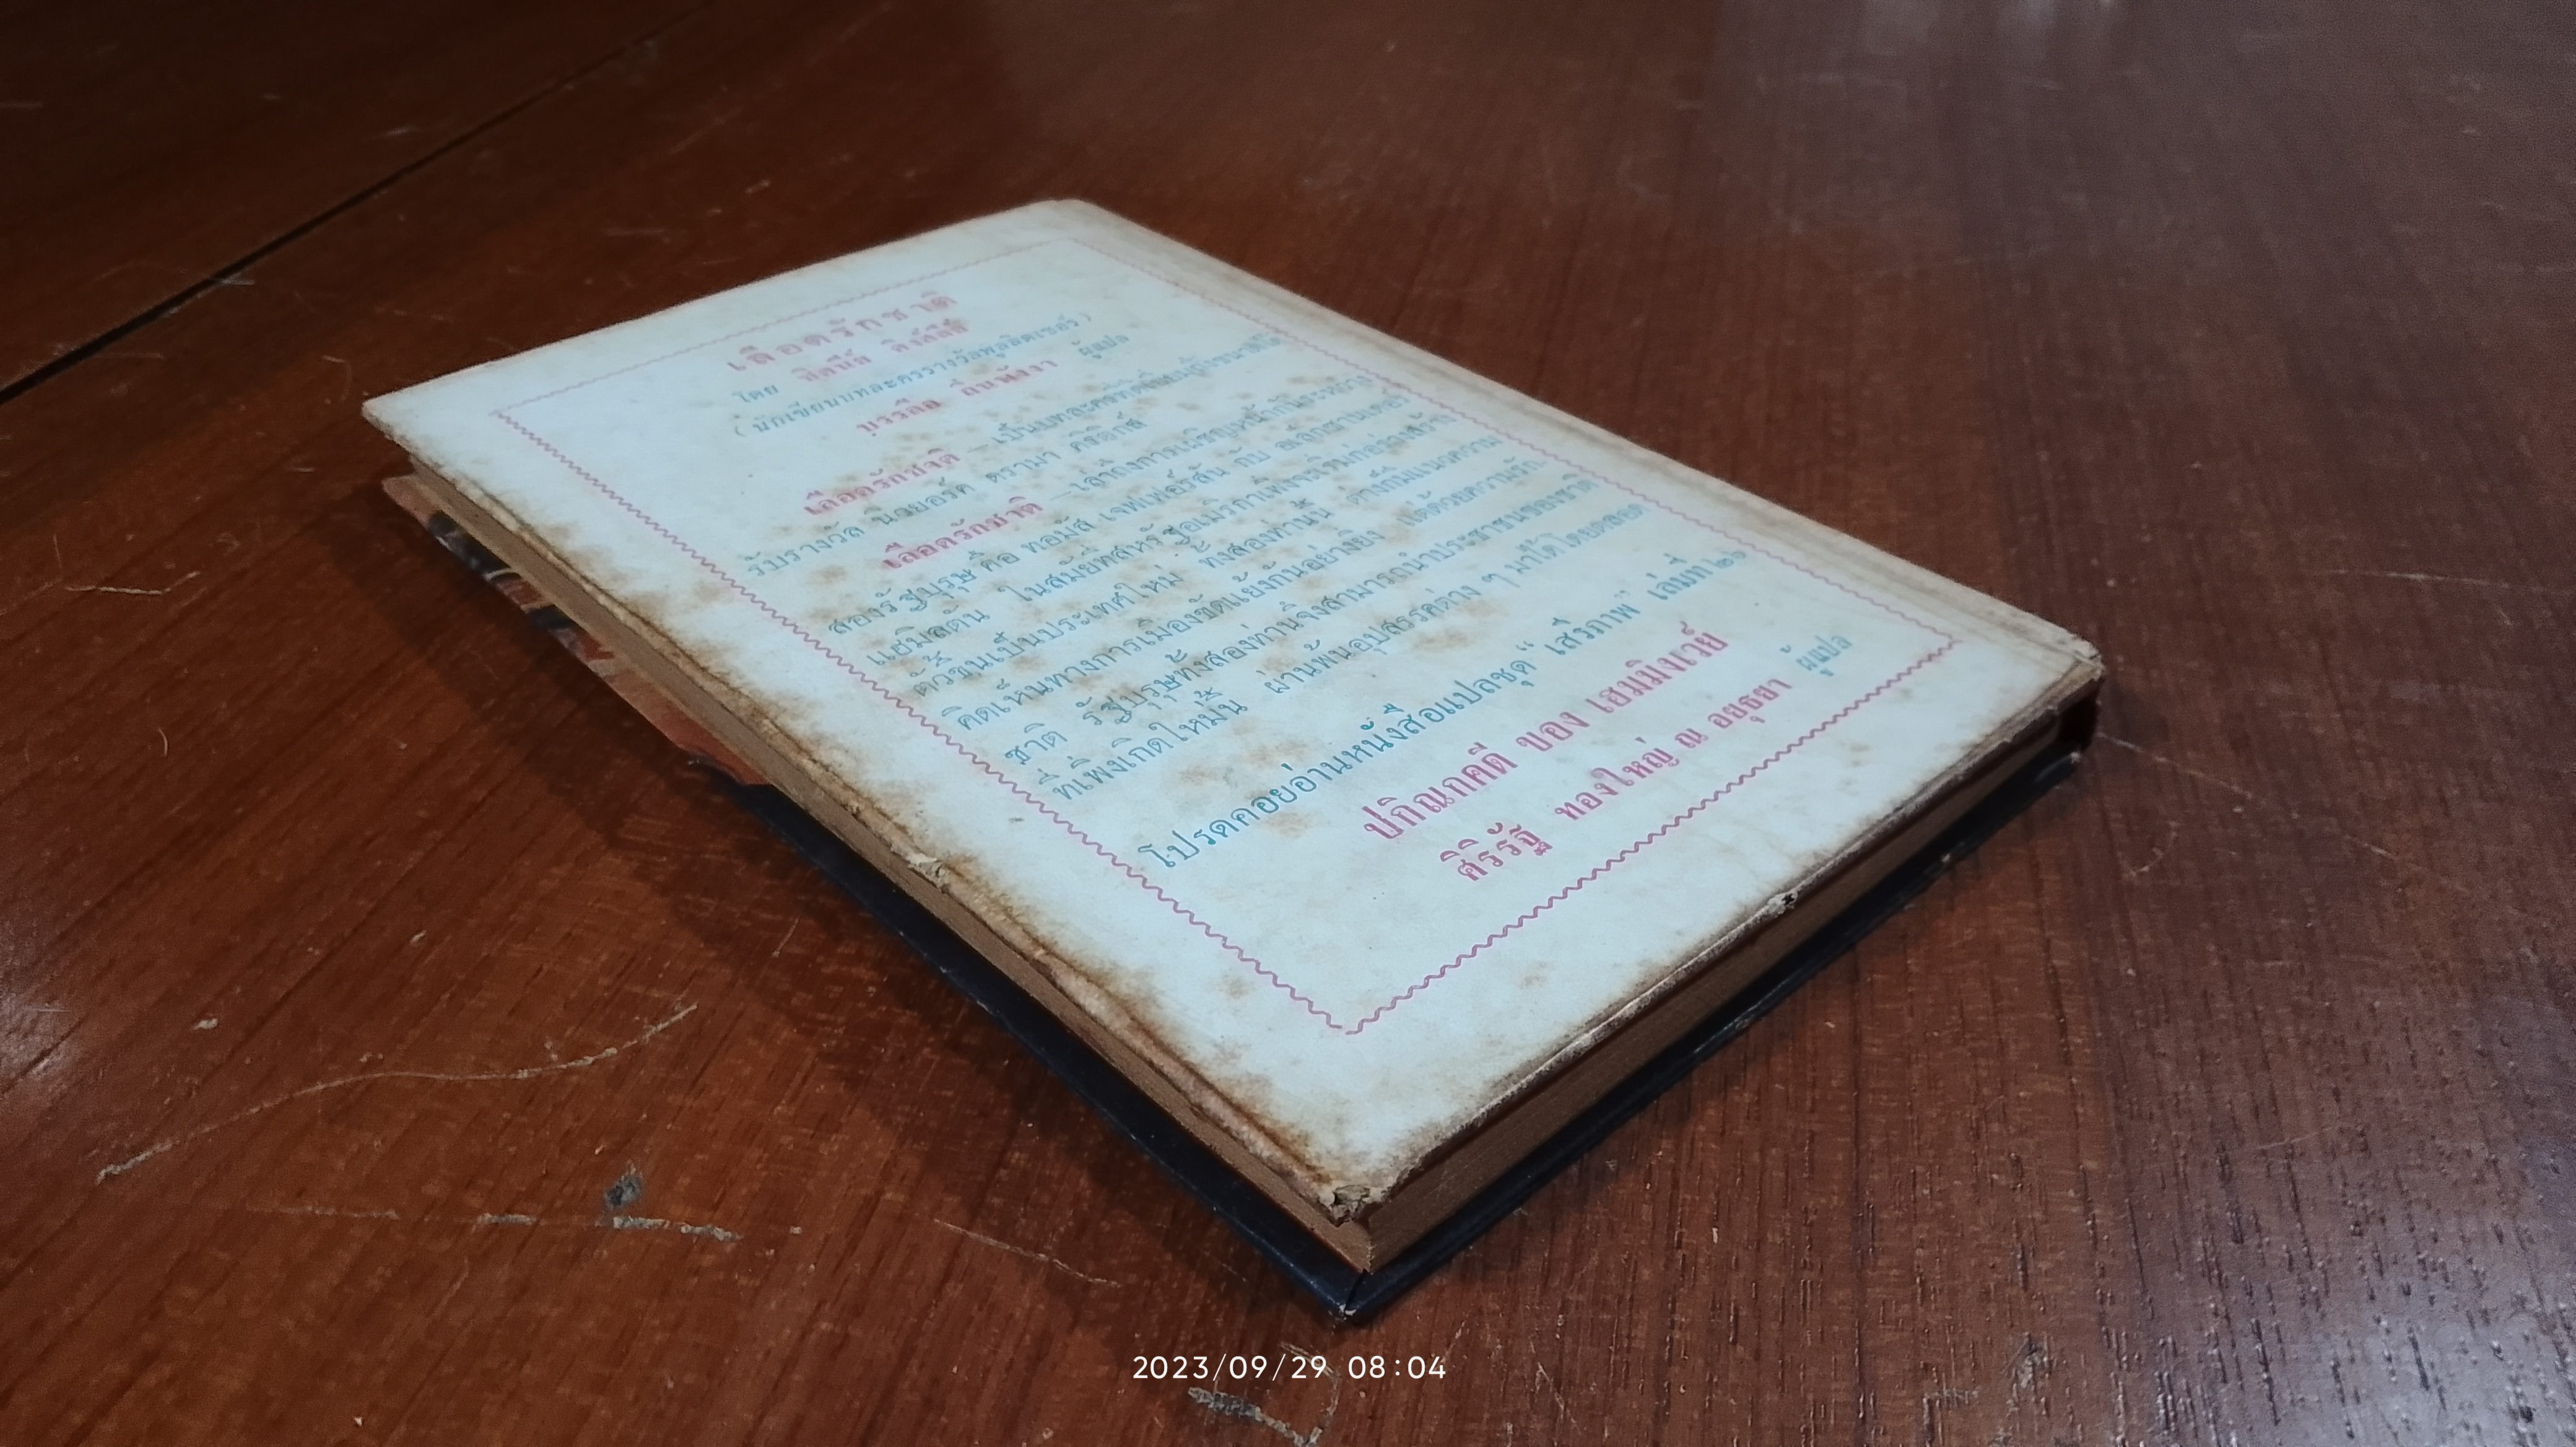 เลือดรักชาติ
โดย ซิดนีย์ คิงสลีย์
( นักเขียนบทละครรางวัลพูลิตเซอร์ )
ผู้แปล
เลือดรักชาติ — เป็นบทละคร
รับรางวัล นิวยอร์ค ดรามา คริติกส์
เลือดรักชาติ — เล่าถึงการเผชิญหน้ากันระหว่าง
สองรัฐบุรุษ คือ ทอมัส เจฟเฟอร์สัน กับ อเล็กซานเดอร์
แฮมิลตัน ในสมัยที่สหรัฐอเมริกาเพิ่งจะเริ่มก่อร่างสร้าง
ตัวขึ้นเป็นประเทศใหม่ ทั้งสองท่านนี้ ต่างก็มีแนวความ
คิดเห็นทางการเมืองขัดแย้งกันอย่างยิ่ง แต่ด้วยความรัก
ชาติ รัฐบุรุษทั้งสองท่านจึงสามารถนำประชาชนของชาติ
ที่เพิ่งเกิดใหม่นี้ ผ่านพ้นอุปสรรคต่าง ๆ มาได้โดยตลอด
โปรดคอยอ่านหนังสือแปลชุด “ เสรีภาพ ” เล่มที่ ๒๖
ปกิณกคดี ของ เฮมมิงเวย์
ศิริรัฐ ทองใหญ่ ณ อยุธยา ผู้แปล
2023/09/29 08:04